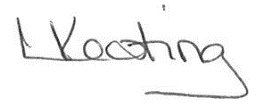 L Keating